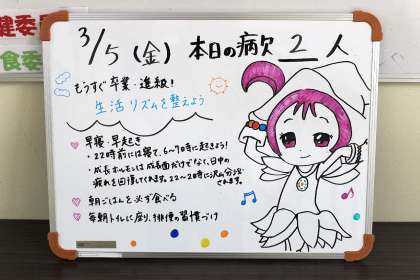 健委員
食委
3/5(金) 本日の病欠 2人
もうすぐ卒業・進級!
生活リズムを整えよう
早寝・早起き
・22時前には寝て、6~7時に起きよう!
・成長ホルモンは成長面だけでなく、日中の
疲れを回復してくれます。22~2時に沢山分泌
されます。
朝ごはんを必ず食べる
毎朝トイレに座り、排便の習慣づけ